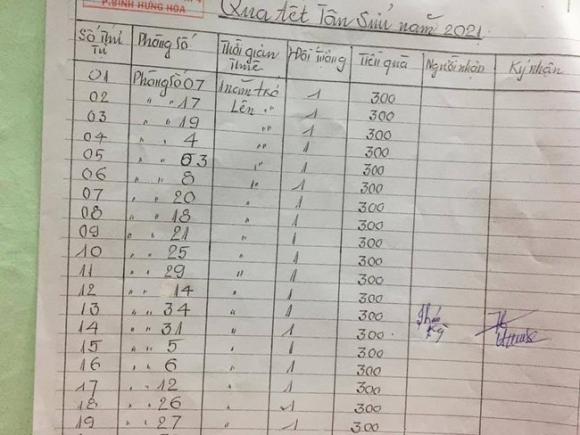 P.BÌNH HƯNG HÒA
Quà tết Tân Sửu năm 2021
Số Thứ Tự Phòng Số Thời gian Thuê Đối tượng Tiền quà Người nhận Ký nhận
01 Phòng số 07 1 năm trở 1 300
02 " " 17 Lên " 1 300
03 " " 19 " 1 300
04 " " 4 " 1 300
05 " " 03 " 1 300
06 " " 8 " 1 300
07 " " 20 " 1 300
08 " " 18 " 1 300
09 " " 21 " 1 300
10 " " 25 " 1 300
11 " " 29 " 1 300
12 " " 14 " 1 300
13 " " 34 " 1 300
14 " " 31 " 1 300
15 " " 5 " 1 300
16 " " 6 " 1 300
17 " " 12 " 1 300
18 " " 26 " 1 300
19 " " 27 " 1 300